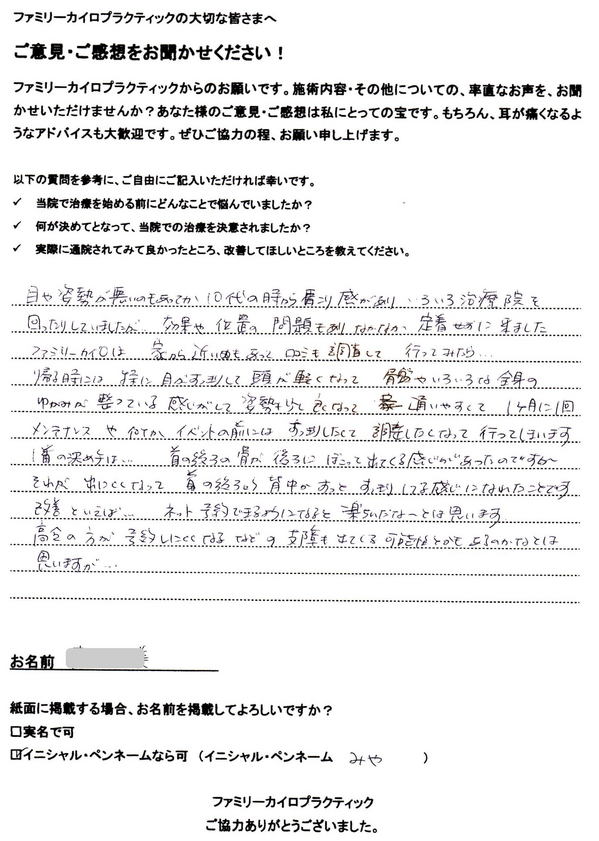 ファミリーカイロプラクティックの大切な皆さまへ
ご意見・ご感想をお聞かせください！
ファミリーカイロプラクティックからのお願いです。施術内容・その他についての、率直なお声を、お聞
かせいただけませんか？あなた様のご意見・ご感想は私にとっての宝です。もちろん、耳が痛くなるよ
うなアドバイスも大歓迎です。ぜひご協力の程、お願い申し上げます。
以下の質問を参考に、ご自由にご記入いただければ幸いです。
✓ 当院で治療を始める前にどんなことで悩んでいましたか？
✓ 何が決めてとなって、当院での治療を決意されましたか？
✓ 実際に通院されてみて良かったところ、改善してほしいところを教えてください。
目や姿勢が悪いのもあってか 10代の時から肩こり感があり、いろいろ治療院を
回ったりしていましたが 効果や位置の問題もありなかなか 定着せずに来ました
ファミリーカイロは 家から近い面もあって 口コミも調査して 行ってみたら…
帰る時には 特に 目がすっきりして 頭が軽くなって 骨盤やいろいろな全身の
ゆがみが 整っている 感じがして 姿勢も 良くなって 通いやすくて 1ヶ月に1回
メンテナンスや 何てか イベントの前には すっきりしたくて 調整したくなって 行ってしまいます
1番の決め手は… 首の後ろの骨が 後ろに ぼこって出てくる感じがあったのですが
それが 出にくくなって 首の後ろから 背中がすっと すっきりしてる感じになれたことです
改善といえば… ネット予約できるようになると 楽ちんだな〜とは思います
高令の方が 予約しにくくなる などの 支障も出てくる可能性とかもあるのかなとは
思いますが…
お名前
紙面に掲載する場合、お名前を掲載してよろしいですか？
□実名で可
☑イニシャル・ペンネームなら可 （イニシャル・ペンネーム みや ）
ファミリーカイロプラクティック
ご協力ありがとうございました。